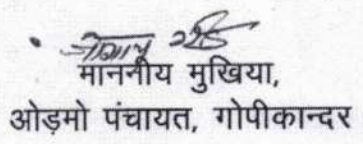 माननीय मुखिया,
ओड़मो पंचायत, गोपीकान्दर